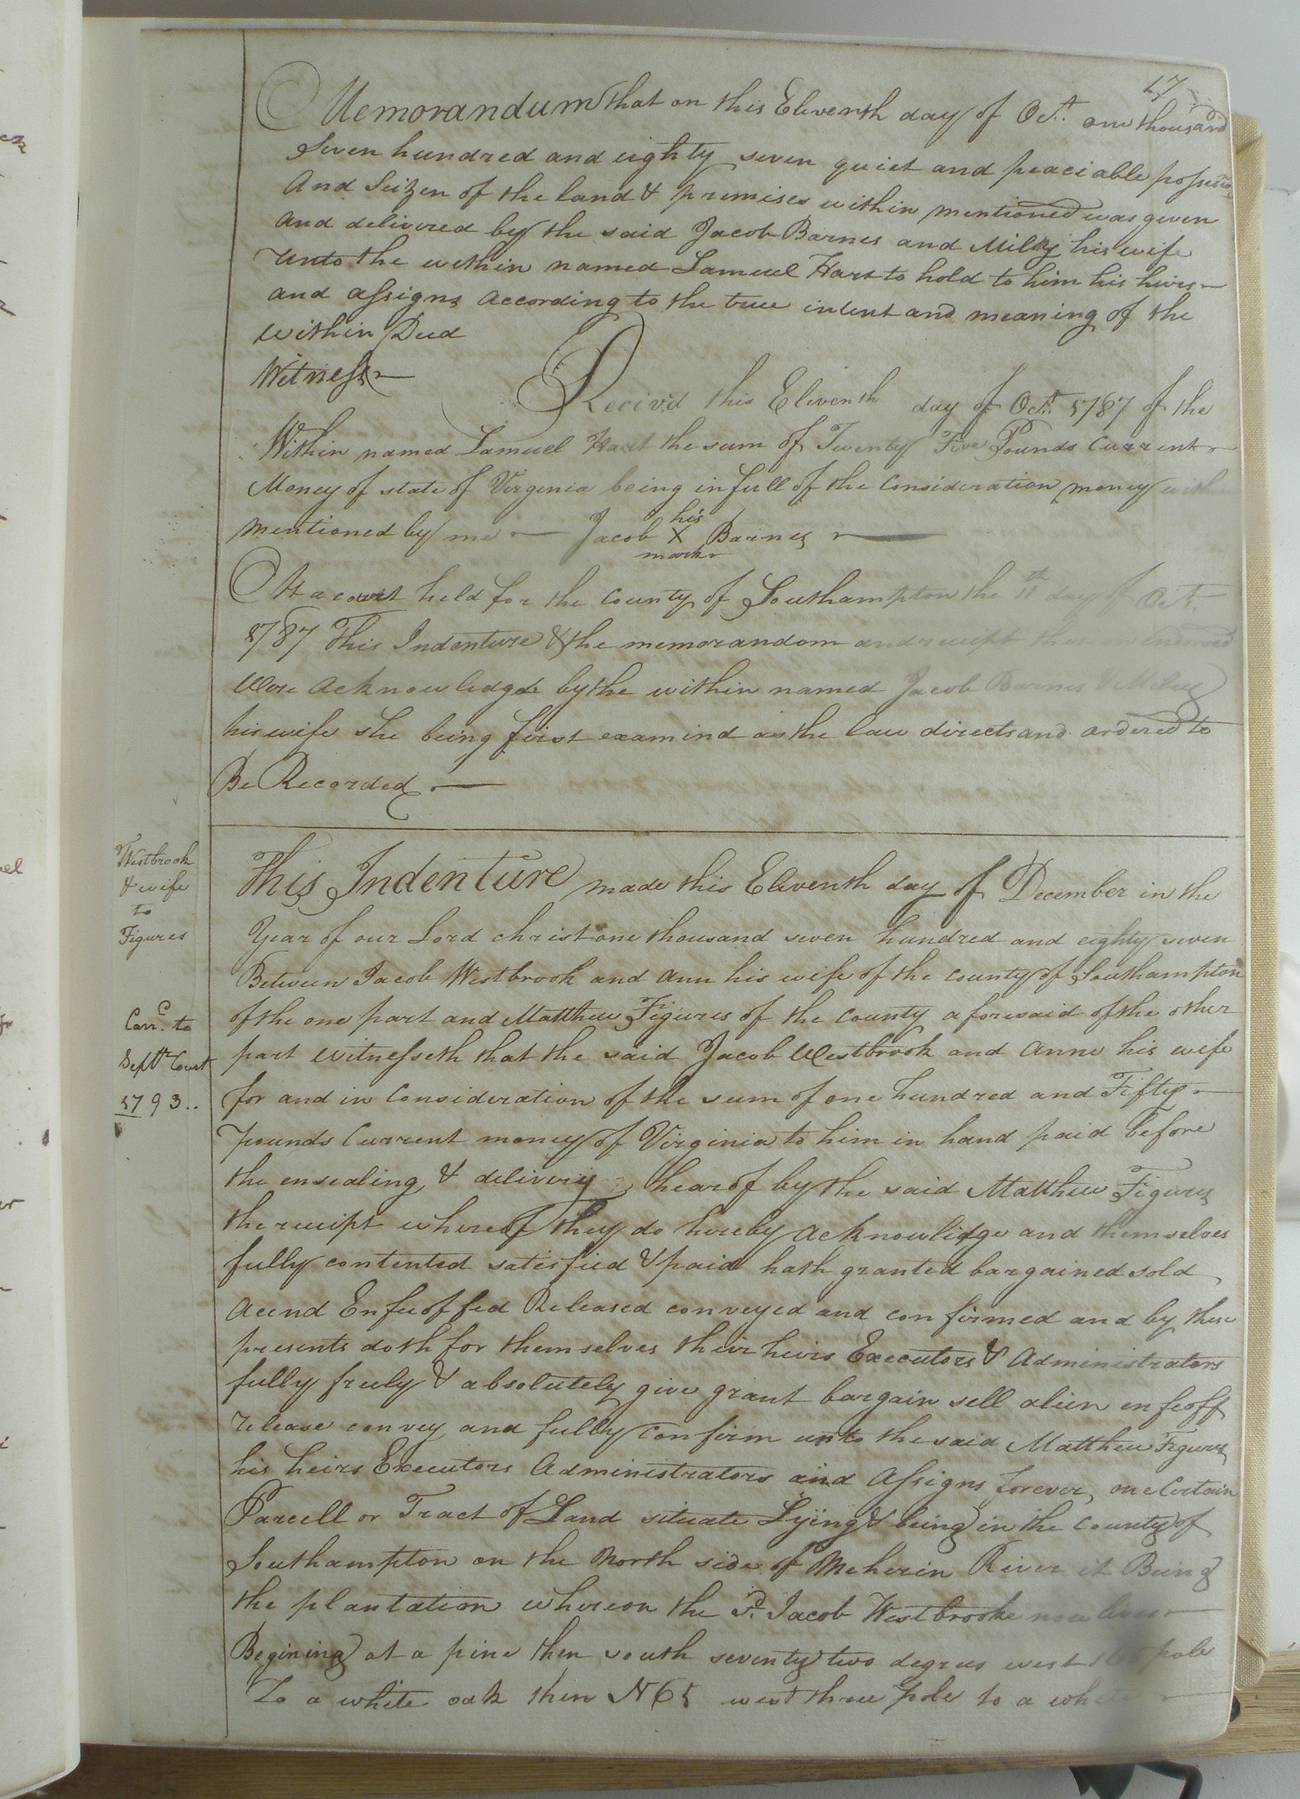 17
Memorandum that on this Eleventh day of Oct. one thousand
Seven hundred and eighty seven quiet and peaciable possesion
And Seizen of the land & premises within mentioned was given
and delivered by the said Jacob Barnes and Milly his wife
unto the within named Samuel Hart to hold to him his heirs
and assigns according to the true intent and meaning of the
within Deed
Witness
Reciv'd this Eleventh day of Oct. 1787 of the
Within named Samuel Hart the sum of Twenty Five Pounds Current
Money of state of Virginia being in full of the Consideration money within
mentioned by me Jacob X Barnes
his
mark
At a court held for the County of Southampton the 11th day of Oct.
1787 This Indenture & the memorandom and receipt
Were acknowledgd by the within named Jacob Barnes & Milly
his wife she being first examind as the law directs and ordered to
Be Recorded
Westbrook
& wife
to
Figures
This Indenture made this Eleventh day of December in the
Year of our Lord christ one thousand seven hundred and eighty seven
Between Jacob Westbrook and Ann his wife of the County of Southampton
of the one part and Matthew Figures of the County aforesaid of the other
Carr. to
Sept. Court
1793..
part Witnesseth that the said Jacob Westbrook and Anne his wife
for and in Consideration of the sum of one hundred and Fifty
pounds Current money of Virginia to him in hand paid before
the ensealing & delivery hearof by the said Matthew Figures
the receipt whereof they do hereby acknowlidge and themselves
fully contented satisfied & paid hath granted bargained sold
Aeend Enfeoffed Released conveyed and confirmed and by these
presents doth for themselves their heirs Executors & Administrators
fully freely & absolutely give grant bargain sell alien enfeoff
release convey and fully confirm unto the said Matthew Figures
his heirs Executors Administrators and Assigns forever, one Certain
Parcell or Tract of Land situate Lying & being in the County of
Southampton on the North side of Meherin River it Being
the plantation whereon the sd. Jacob Westbrooke now lives
Begining at a pine then south seventy two degrees west pole
To a white oak then N 65 west three pole to a white